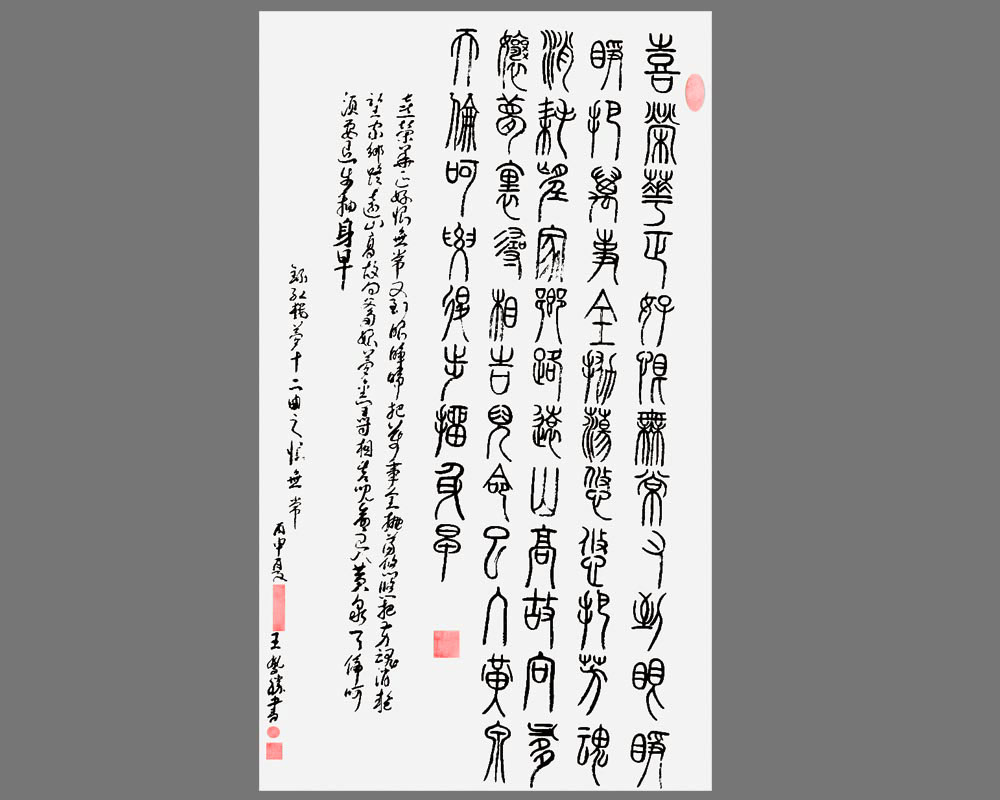 喜榮華正好恨無常又到眼睜
睜把萬事全拋蕩悠悠把芳魂
消耗望家鄉路遠山高故向爹
孃夢裏尋相告兒命已入黃泉
天倫呵須退步抽身早
喜榮華正好恨無常又到眼睜睜把萬事全拋蕩悠悠把芳魂消耗
望家鄉路遠山高故向爹娘夢裏尋相告兒命已入黃泉天倫呵
須要退步抽身早
錄紅樓夢十二曲之恨無常
丙申夏 王勝書